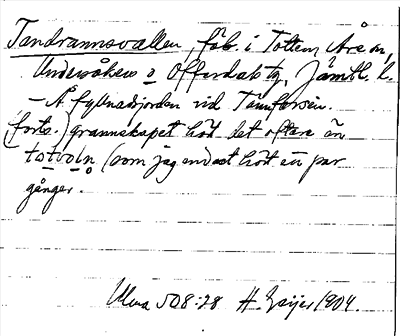 Tandrannsvallen, fäb. i Tottem, Åre sn,
Undersåkers o Offerdals tg, Jämtl. l.
– Å fyllnadsjorden vid Tännforsen.
(forts.) grannskapet hört det oftare än
(som jag endast hört en par
gånger.
Ulma 508:28 H. Geijer 1904.